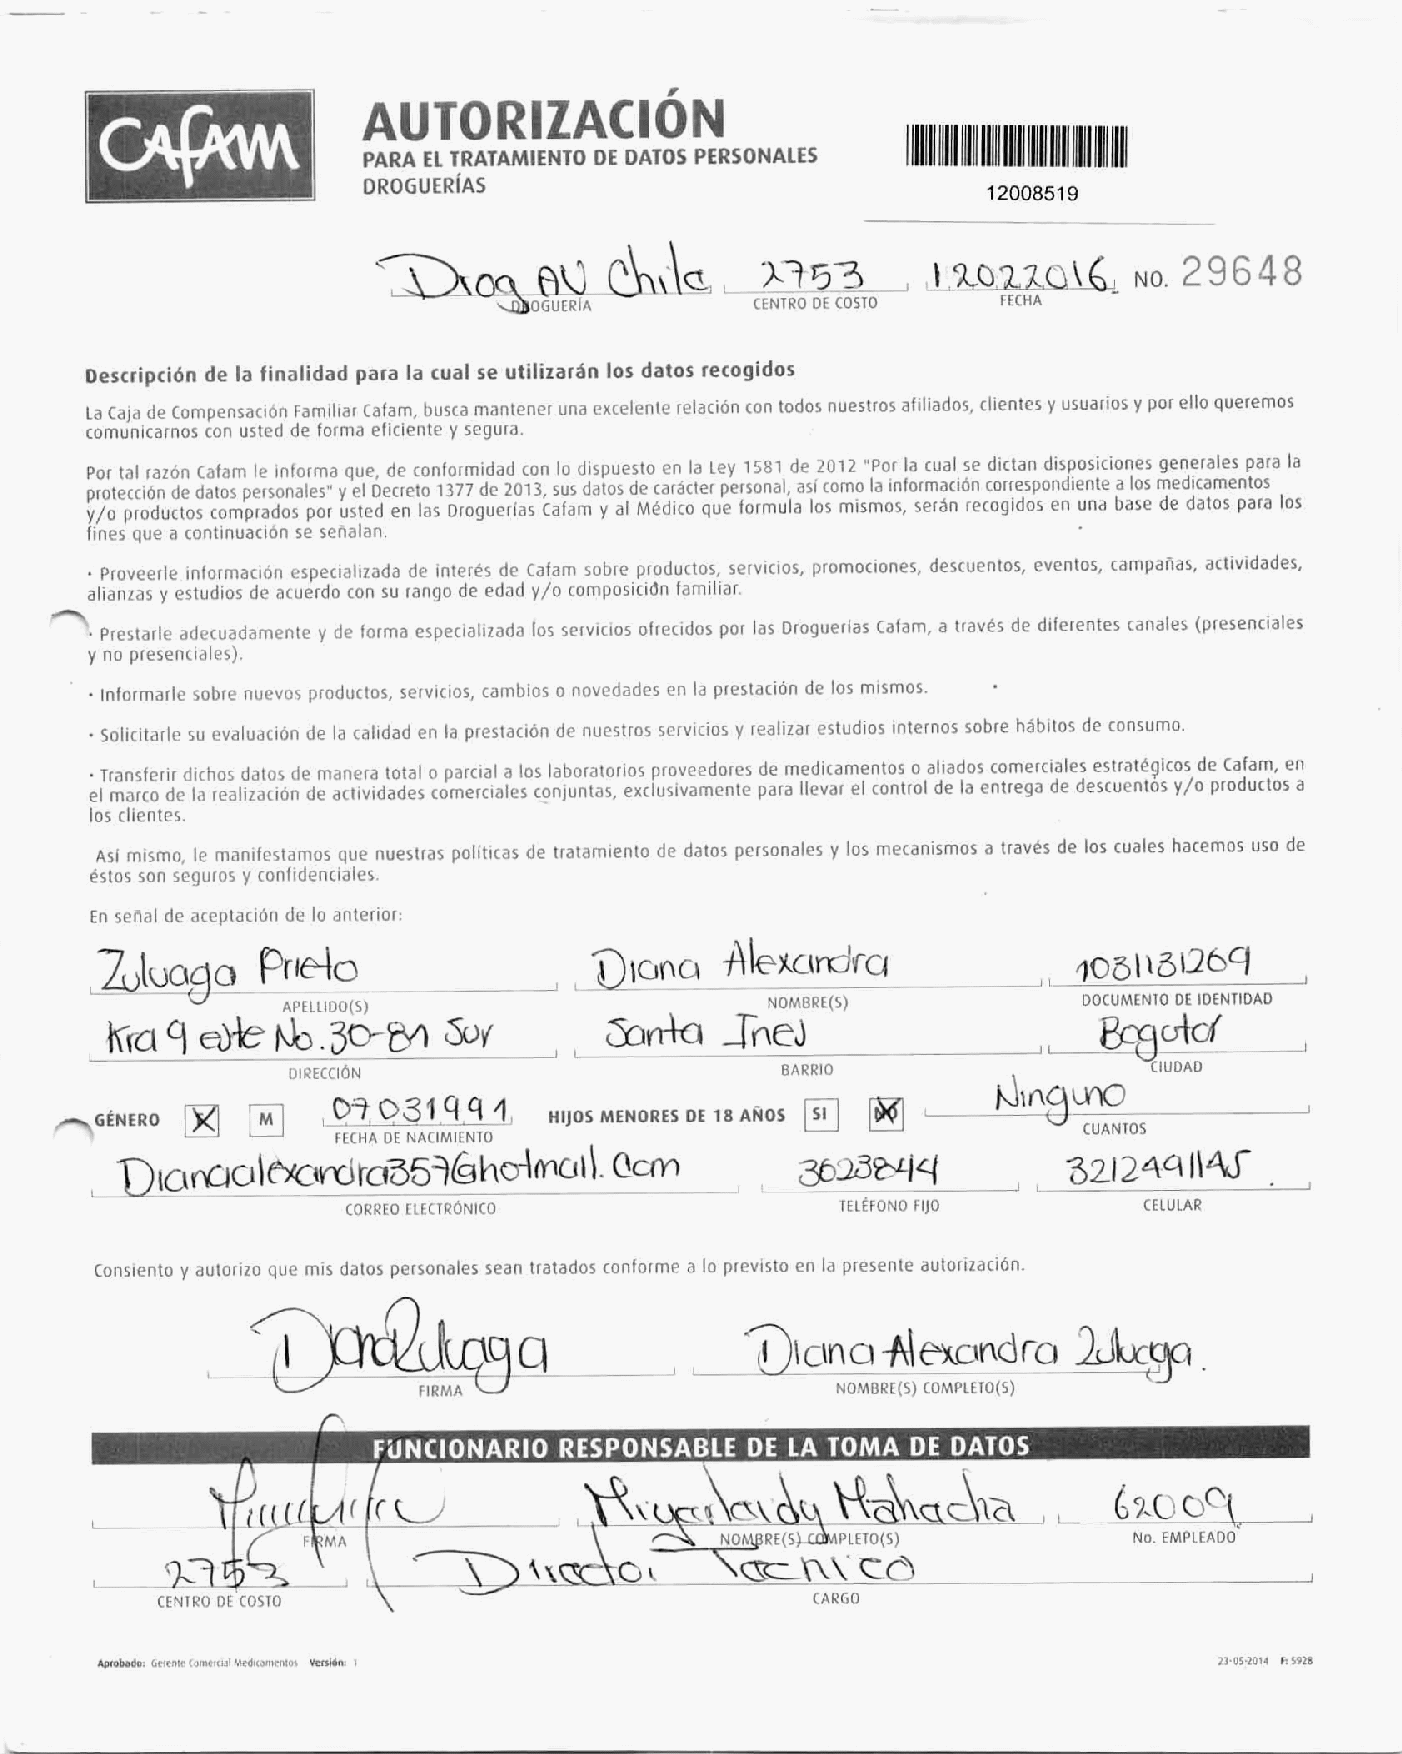 CAFAM
AUTORIZACIÓN
PARA EL TRATAMIENTO DE DATOS PERSONALES
DROGUERÍAS
12008519
Drog AV Chile 2753 12022016 NO. 29648
DROGUERÍA CENTRO DE COSTO FECHA
Descripción de la finalidad para la cual se utilizarán los datos recogidos
La Caja de Compensación Familiar Cafam, busca mantener una excelente relación con todos nuestros afiliados, clientes y usuarios y por ello queremos
comunicarnos con usted de forma eficiente y segura.
Por tal razón Cafam le informa que, de conformidad con lo dispuesto en la Ley 1581 de 2012 "Por la cual se dictan disposiciones generales para la
protección de datos personales" y el Decreto 1377 de 2013, sus datos de carácter personal, así como la información correspondiente a los medicamentos
y/o productos comprados por usted en las Droguerías Cafam y al Médico que formula los mismos, serán recogidos en una base de datos para los
fines que a continuación se señalan.
· Proveerle información especializada de interés de Cafam sobre productos, servicios, promociones, descuentos, eventos, campañas, actividades,
alianzas y estudios de acuerdo con su rango de edad y/o composición familiar.
· Prestarle adecuadamente y de forma especializada los servicios ofrecidos por las Droguerías Cafam, a través de diferentes canales (presenciales
y no presenciales).
· Informarle sobre nuevos productos, servicios, cambios o novedades en la prestación de los mismos.
· Solicitarle su evaluación de la calidad en la prestación de nuestros servicios y realizar estudios internos sobre hábitos de consumo.
· Transferir dichos datos de manera total o parcial a los laboratorios proveedores de medicamentos o aliados comerciales estratégicos de Cafam, en
el marco de la realización de actividades comerciales conjuntas, exclusivamente para llevar el control de la entrega de descuentos y/o productos a
los clientes.
Así mismo, le manifestamos que nuestras políticas de tratamiento de datos personales y los mecanismos a través de los cuales hacemos uso de
éstos son seguros y confidenciales.
En señal de aceptación de lo anterior:
Zuluaga Prieto Diana Alexandra 1031131269
APELLIDO(S) NOMBRE(S) DOCUMENTO DE IDENTIDAD
Kra 9 este No. 30-81 Sur Santa Ines Bogotá
DIRECCIÓN BARRIO CIUDAD
GÉNERO X M 07031991 HIJOS MENORES DE 18 AÑOS SI NO Ninguno
FECHA DE NACIMIENTO CUANTOS
Dianaalexandra357@hotmail.com 3623844 3212491145
CORREO ELECTRÓNICO TELÉFONO FIJO CELULAR
Consiento y autorizo que mis datos personales sean tratados conforme a lo previsto en la presente autorización.
Diana Zuluaga Diana Alexandra Zuluaga.
FIRMA NOMBRE(S) COMPLETO(S)
FUNCIONARIO RESPONSABLE DE LA TOMA DE DATOS
Mahecha 62009
FIRMA NOMBRE(S) COMPLETO(S) No. EMPLEADO
2753 Director Tecnico
CENTRO DE COSTO CARGO
Aprobado: Gerente Comercial Medicamentos Versión: 1 23-05-2014 F: 5928